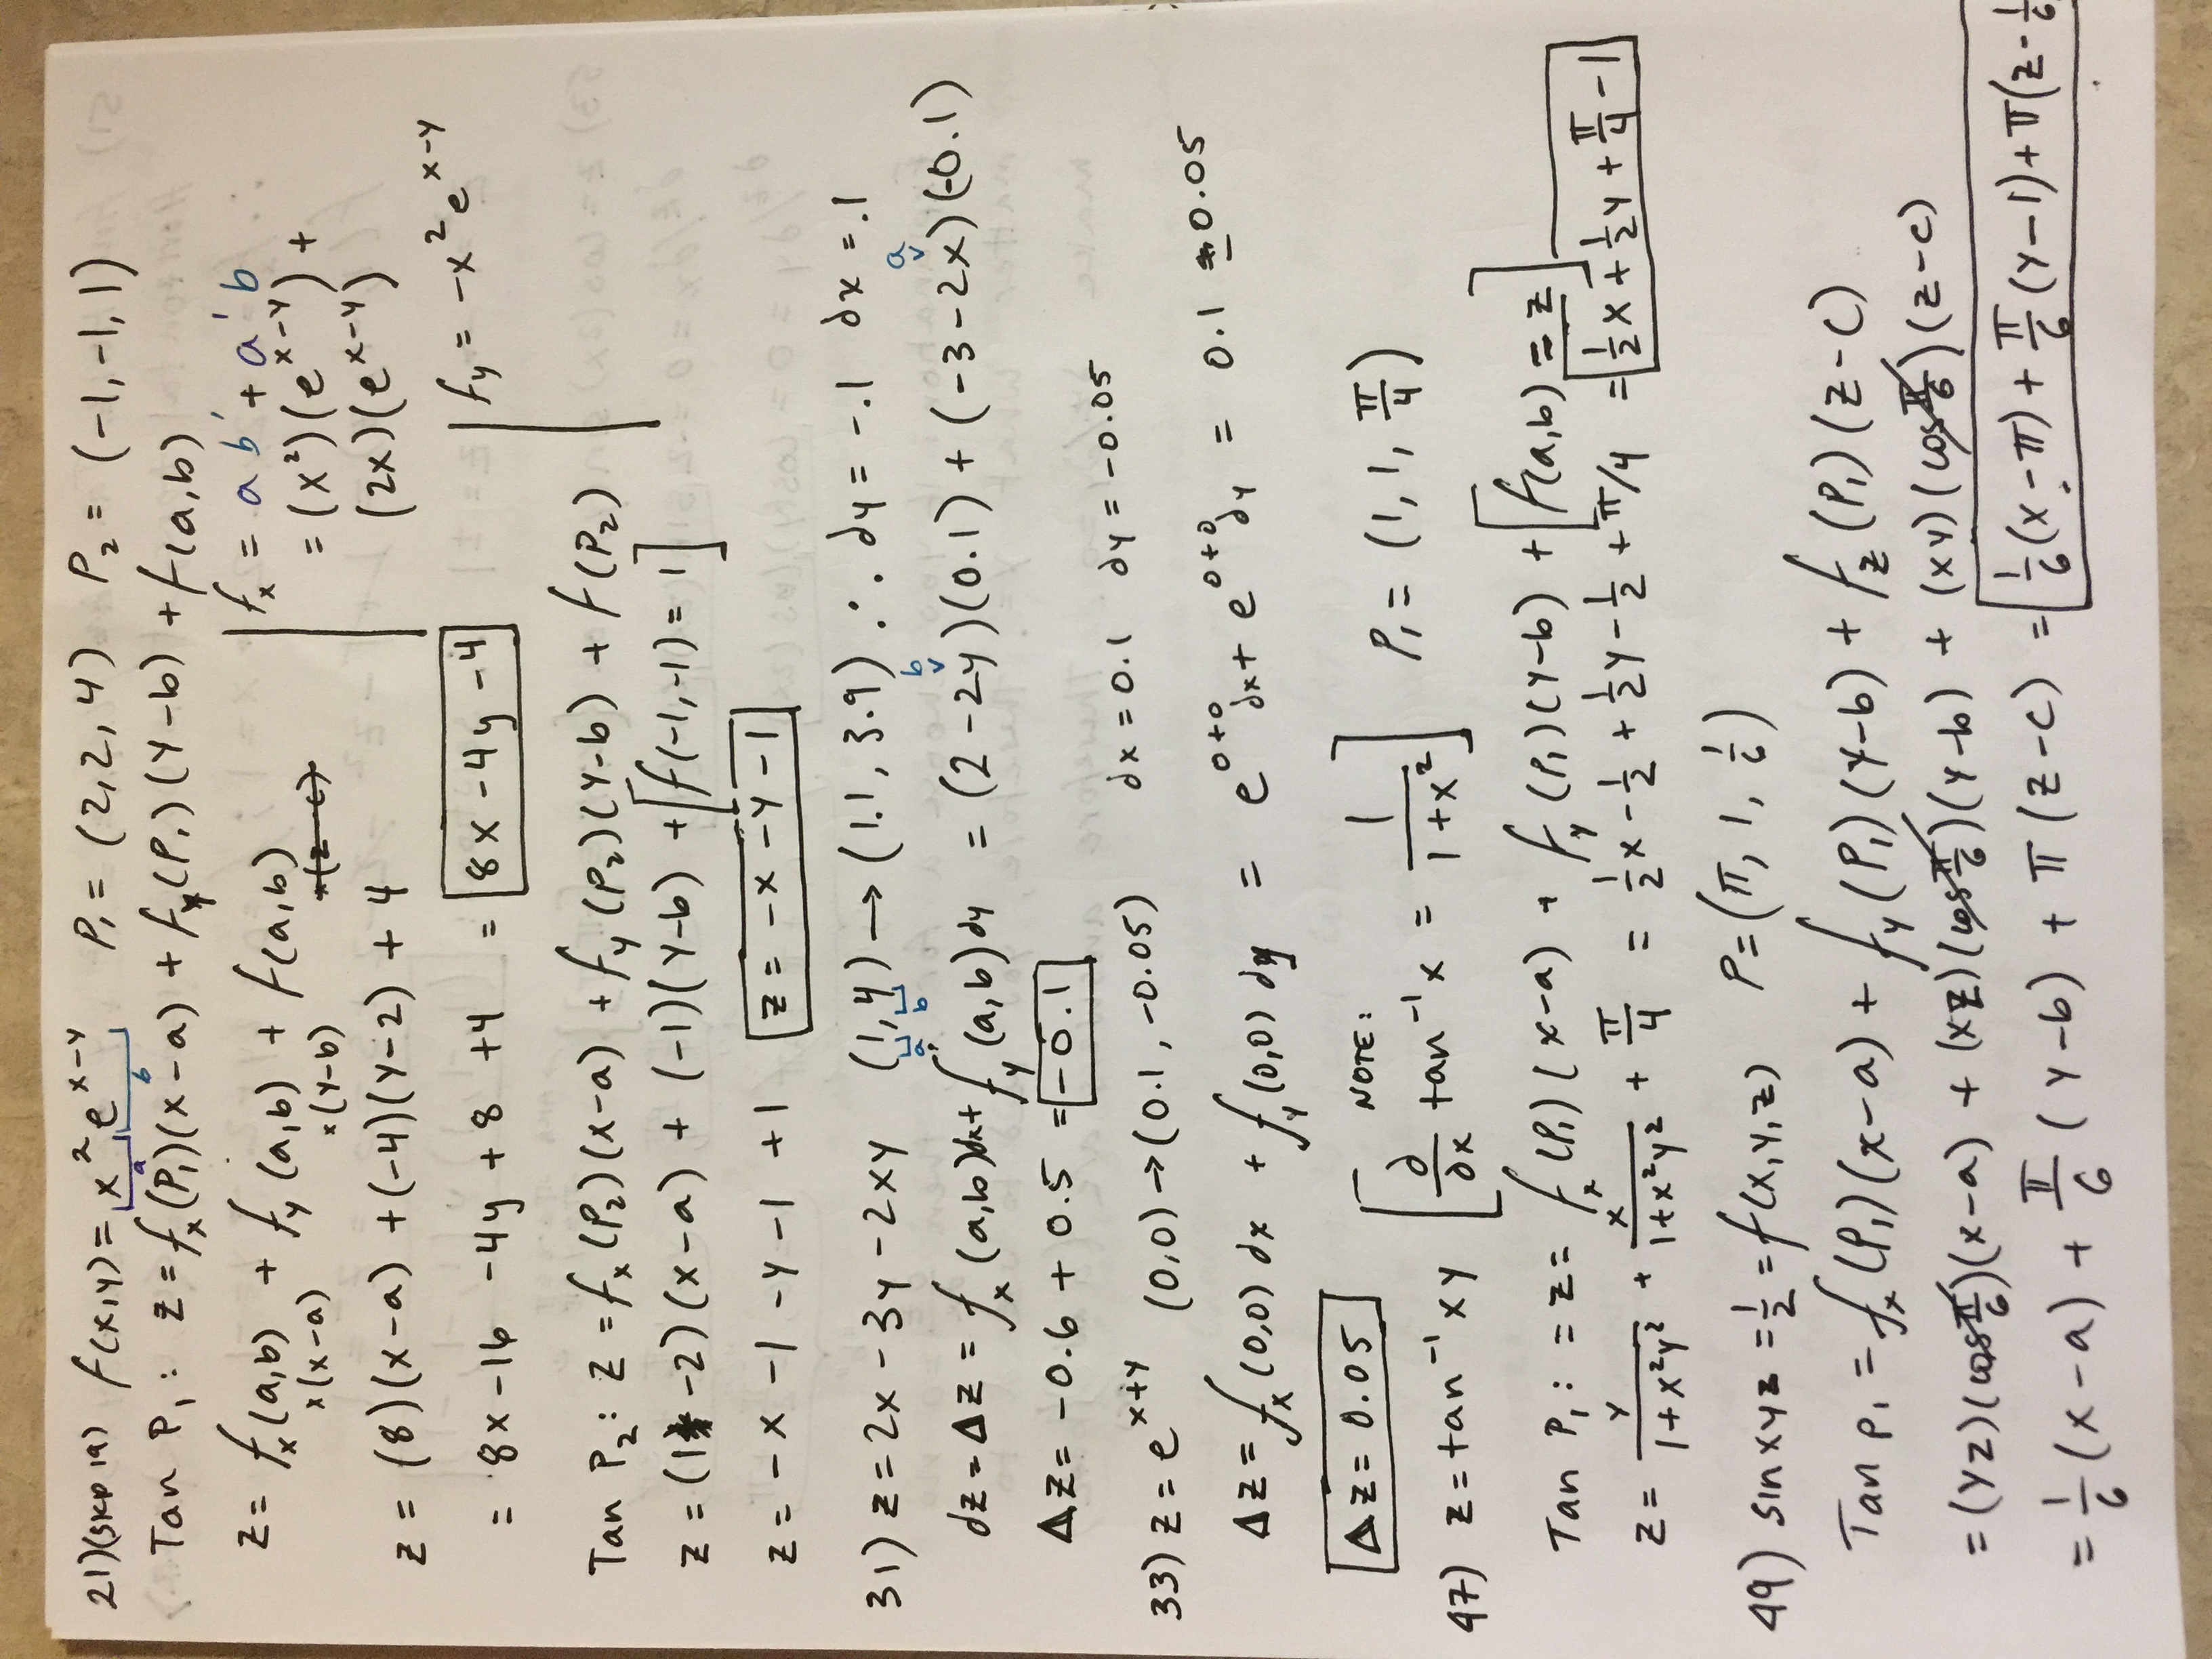 21)(skip 19) f(x,y) = x²e^(x-y) P₁ = (2,2,4) P₂ = (-1,-1,1)
a b
Tan P₁: z = fₓ(P₁)(x-a) + f_y(P₁)(y-b) + f(a,b)
z = fₓ(a,b) + f_y(a,b) + f(a,b)
×(x-a) ×(y-b)
z = (8)(x-a) + (-4)(y-2) + 4
= 8x-16 -4y+8 +4 = 8x-4y-4
fₓ = ab' + a'b
= (x²)(e^(x-y)) +
(2x)(e^(x-y))
f_y = -x²e^(x-y)
Tan P₂: z = fₓ(P₂)(x-a) + f_y(P₂)(y-b) + f(P₂)
z = (1 -2)(x-a) + (-1)(y-b) + [f(-1,-1) = 1]
z = -x -1 -y -1 +1 z = -x-y-1
31) z = 2x-3y-2xy (1,4) → (1.1, 3.9) ∴ dy = -.1 dx = .1
a b b a
dz = Δz = fₓ(a,b)dx + f_y(a,b)dy = (2-2y)(0.1) + (-3-2x)(-0.1)
Δz = -0.6 + 0.5 = -0.1
33) z = e^(x+y) (0,0) → (0.1, -0.05) dx = 0.1 dy = -0.05
Δz = fₓ(0,0) dx + f_y(0,0) dy = e^(0+0)dx + e^(0+0)dy = 0.1 - 0.05
Δz = 0.05
47) z = tan⁻¹xy [NOTE: ∂/∂x tan⁻¹x = 1/(1+x²)] P₁ = (1, 1, π/4)
Tan P₁: = z = fₓ(P₁)(x-a) + f_y(P₁)(y-b) + [f(a,b) = z]
z = y/(1+x²y²) + x/(1+x²y²) + π/4 = ½x - ½ + ½y - ½ + π/4 = ½x + ½y + π/4 - 1
49) sinxyz = ½ = f(x,y,z) P = (π, 1, 1/6)
Tan P₁ = fₓ(P₁)(x-a) + f_y(P₁)(y-b) + f_z(P₁)(z-c)
= (yz)(cos π/6)(x-a) + (xz)(cos π/6)(y-b) + (xy)(cos π/6)(z-c)
= 1/6(x-a) + π/6(y-b) + π(z-c) = 1/6(x-π) + π/6(y-1) + π(z-1/6